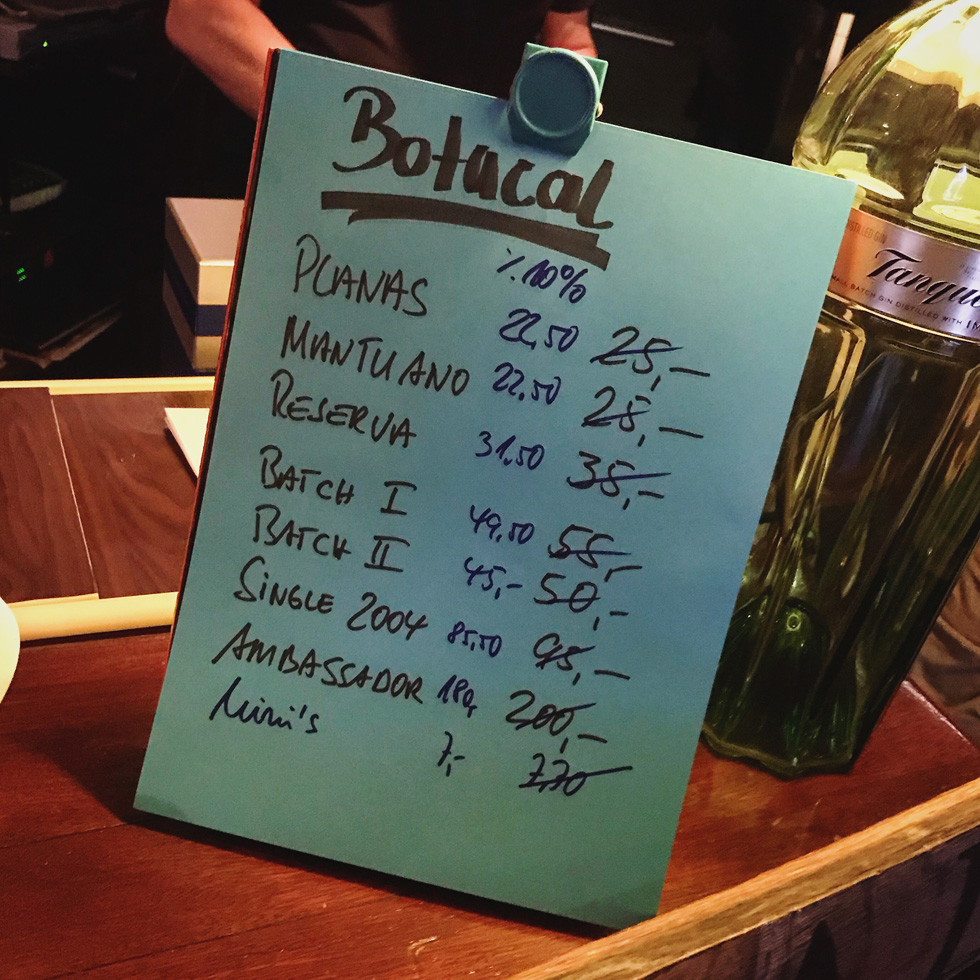 Botucal
٪ 10%
PLANAS 22,50 25,—
MANTUANO 22,50 25,—
RESERVA 31,50 35,—
BATCH I 49,50 55,—
BATCH II 45,- 50,-
SINGLE 2004 85,50 95,—
AMBASSADOR 180, 200,—
Mini's 7,- 7,70
Tanqu
BATCH GIN DISTILLED WITH